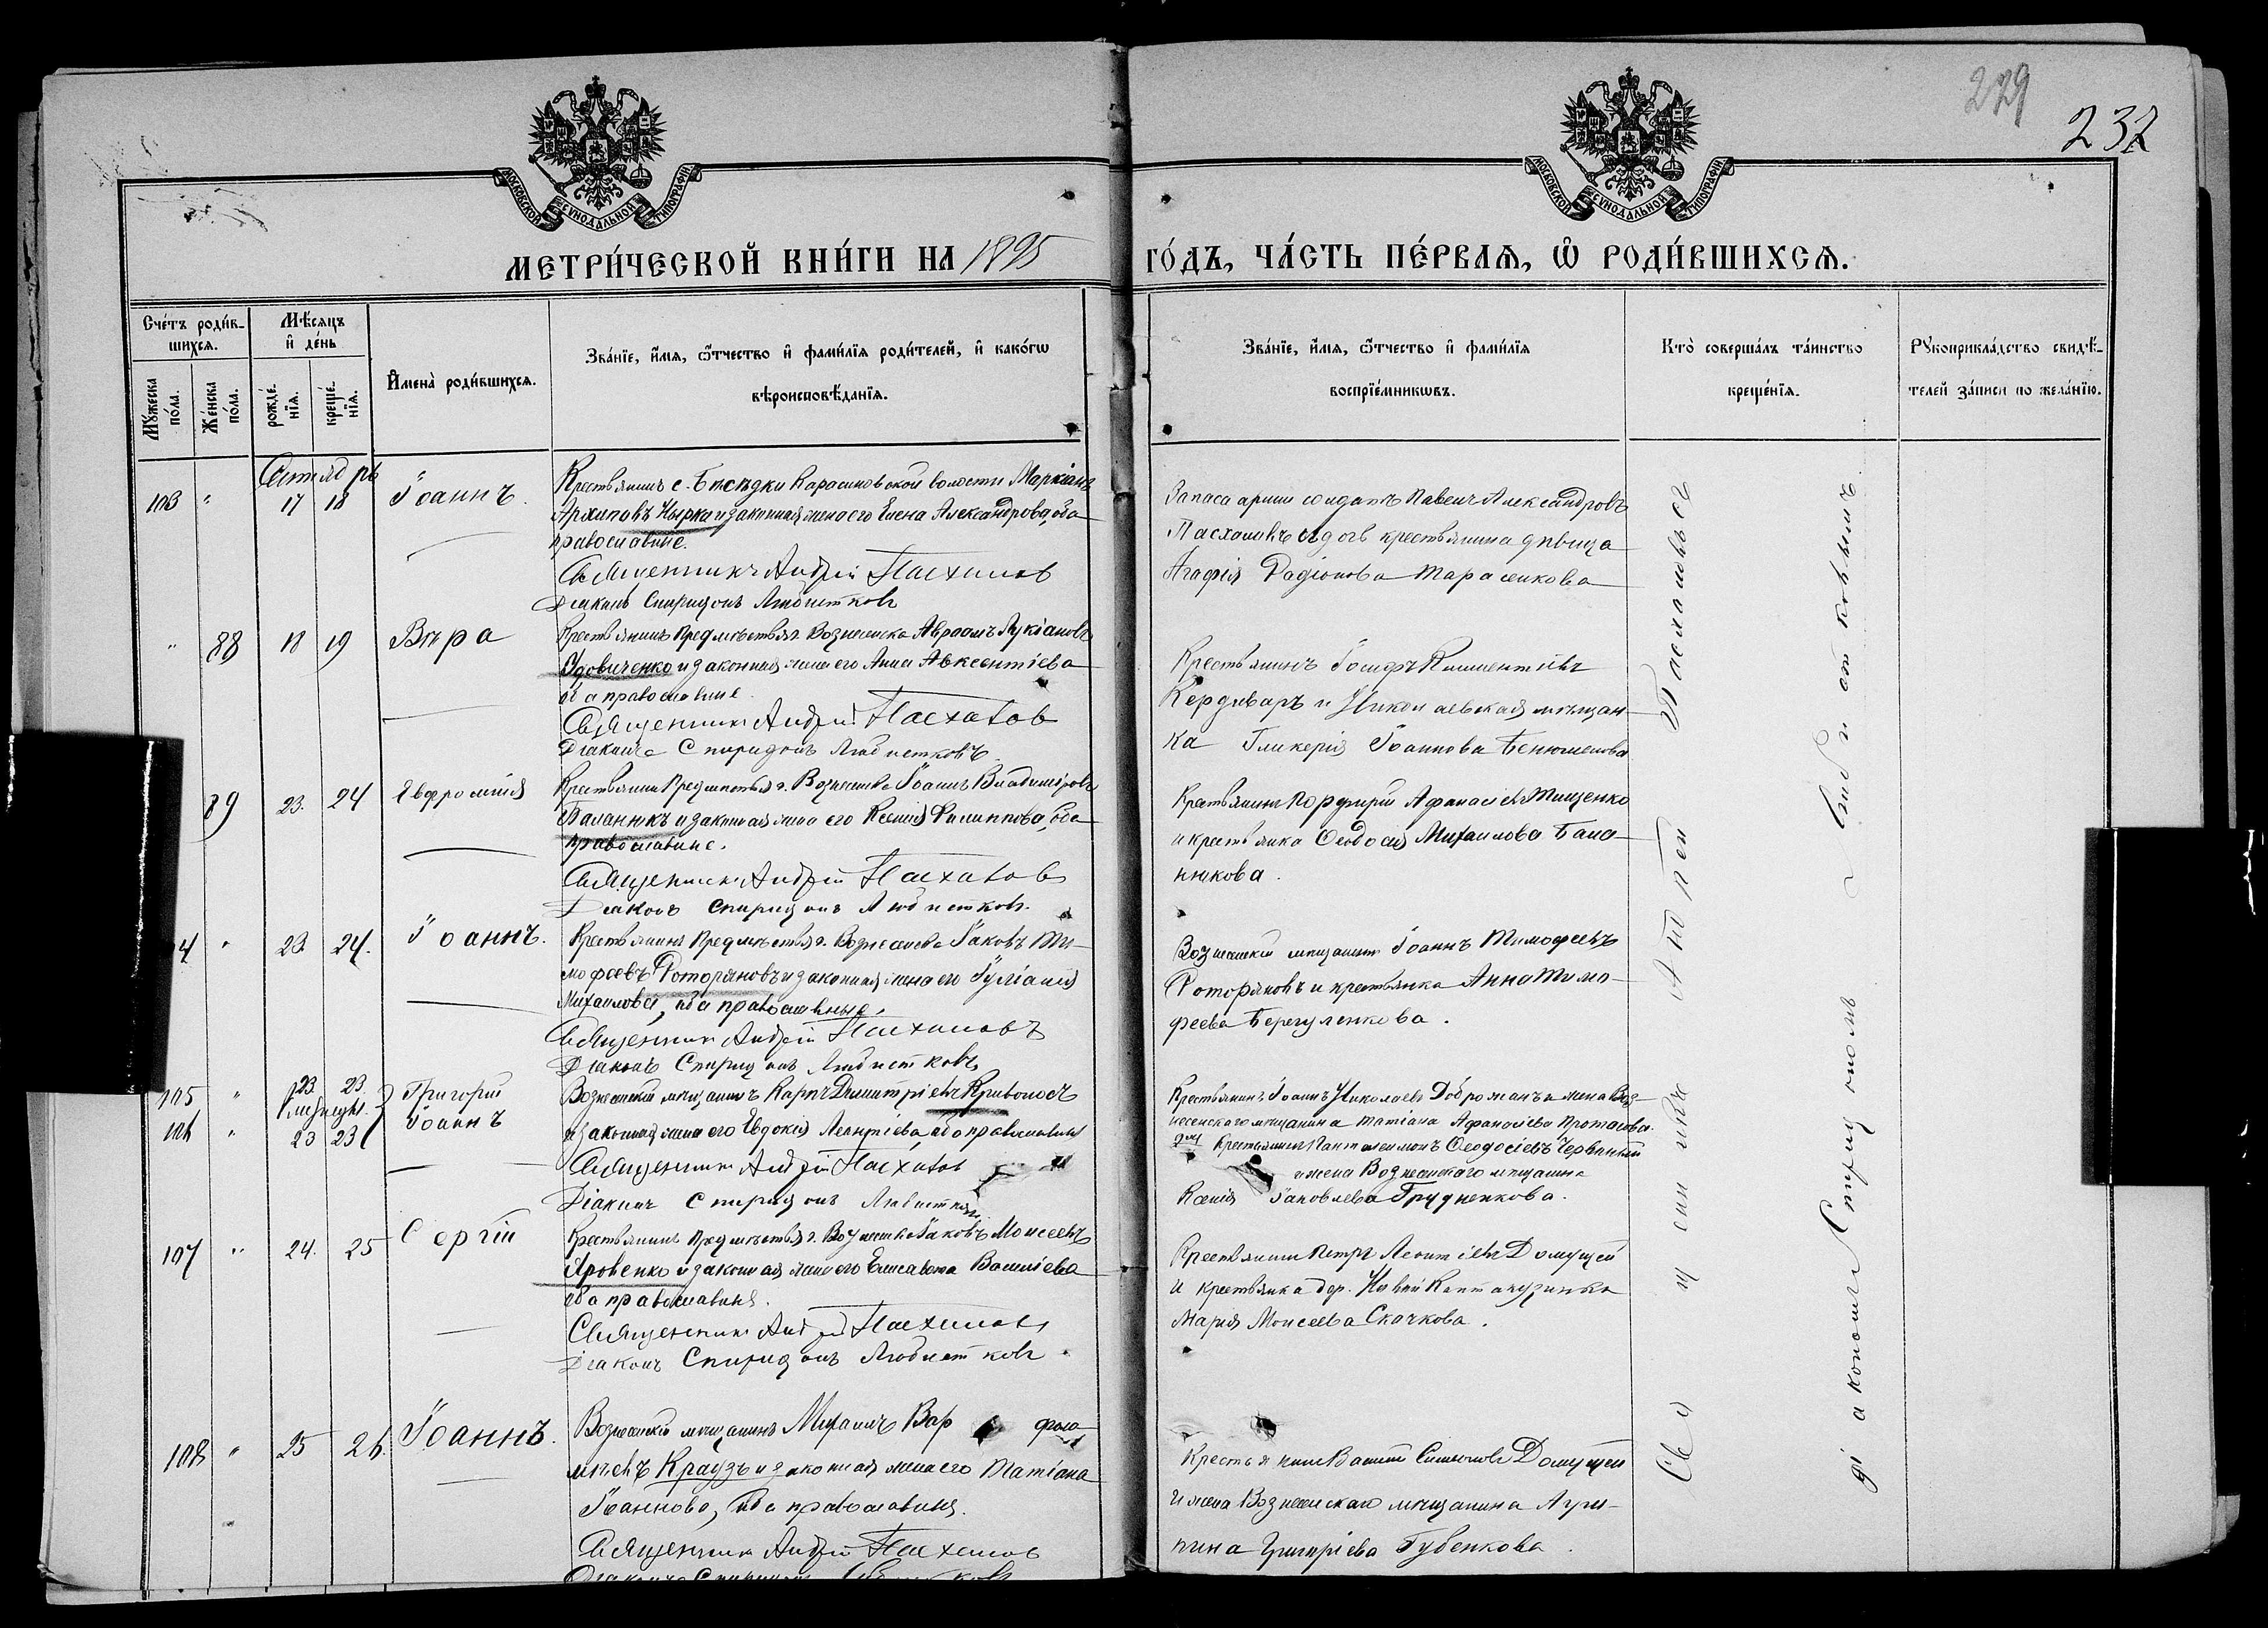 279
232
МОСКОВСКОЙ СѴНОДАЛЬНОЙ ТИПОГРАФІИ
МОСКОВСКОЙ СѴНОДАЛЬНОЙ ТИПОГРАФІИ
МЕТРИ́ЧЕСКОЙ КНИ́ГИ НА 1895 ГО́ДЪ, ЧА́СТЬ ПЕ́РВАЯ, Ѡ РОДИ́ВШИХСЯ.
Сче́тъ роди́в-
шихся.
Мꙋ́жеска по́ла.
Же́нска по́ла.
Мѣ́сяцъ
и҆ де́нь
рожде́-
нїя.
креще́-
нїя.
И҆мена̀ роди́вшихся.
Зва́нїе, и҆́мя, ѻ҆́тчество и҆ фами́лїя роди́телей, и҆ како́гѡ
вѣроисповѣ́данїя.
Зва́нїе, и҆́мя, ѻ҆́тчество и҆ фами́лїя
воспрїе́мникѡвъ.
Кто̀ соверша́лъ та́инство
креще́нїя.
Рꙋкоприкла́дство свидѣ́-
телей за́писи по жела́нїю.
Сентябрь
103 " 17 18 Іоаннъ.
Крестьянинъ с. Бѣсѣдки Карасиновской волости Маркіанъ
Архиповъ Нырка и законная жена его Елена Александрова, оба
православные.
Священникъ Андрей Пасхаловъ
Діаконъ Спиридонъ Любистковъ
Запаса арміи солдатъ Павелъ Александровъ
Пасхаловъ и дочь крестьянина дѣвица
Агафія Радіонова Тарасенкова
" 88 18 19 Вѣра
Крестьянинъ предмѣстья г. Вознесенска Авраамъ Лукіановъ
Удовиченко и законная жена его Анна Авксентіева
оба православные.
Священникъ Андрей Пасхаловъ
Діаконъ Спиридонъ Любистковъ
Крестьянинъ Іосифъ Климентіевъ
Кердиваръ и Николаевская мѣщан-
ка Гликерія Іоаннова
89 23. 24 Евфросинія
Крестьянинъ предмѣстья г. Вознесенска Іоаннъ Владиміровъ
Баланюкъ и законная жена его Ксенія Филиппова, оба
православные.
Священникъ Андрей Пасхаловъ
Діаконъ Спиридонъ Любистковъ.
Крестьянинъ Порфирій Афанасіевъ Тищенко
и крестьянка Ѳеодосія Михаилова Бала-
нюкова.
4 " 23 24. Іоаннъ.
Крестьянинъ предмѣстья г. Вознесенска Іаковъ Ти-
мофеевъ Роторяновъ и законная жена его Іуліанія
Михаилова, оба православные.
Священникъ Андрей Пасхаловъ
Діаконъ Спиридонъ Любистковъ
Вознесенскій мѣщанинъ Іоаннъ Тимофеевъ
Роторяновъ и крестьянка Анна Тимо-
феева Берегуленкова.
105 " 23 23. Григорій
близнецы.
106 " 23 23 Іоаннъ
Вознесенскій мѣщанинъ Карпъ Димитріевъ Кривоносъ
и законная жена его Евдокія Леонтіева, оба православные
Священникъ Андрей Пасхаловъ
Діаконъ Спиридонъ Любистковъ
Крестьянинъ Іоаннъ Николаевъ Доброжанъ и жена Воз-
несенскаго мѣщанина Татіана Афанасіева Протасова.
Крестьянинъ Пантелеимонъ Ѳеодосіевъ
и жена Вознесенскаго мѣщанина
Ксенія Іаковлева Грудненкова.
107 " 24. 25 Сергій
Крестьянинъ предмѣстья г. Вознесенска Іаковъ Моисеевъ
Яровенко и законная жена его Елисавета Василіева
оба православные.
Священникъ Андрей Пасхаловъ
Діаконъ Спиридонъ Любистковъ.
Крестьянинъ Петръ Леонтіевъ Домущей
и крестьянка дер. Новой Кантакузинки
Марія Моисеева Скачкова.
108 " 25 26. Іоаннъ.
Вознесенскій мѣщанинъ Михаилъ Вар фоло-
мѣевъ Краузъ и законная жена его Татіана
Іоаннова, оба православные.
Священникъ Андрей Пасхаловъ
Діаконъ Спиридонъ Любистковъ
Крестьянинъ Симеоновъ Домущей
и жена Вознесенскаго мѣщанина Агри-
пина Григоріева Губенкова.
Священникъ Андрей Пасхаловъ съ
діакономъ Спиридономъ Любистковымъ